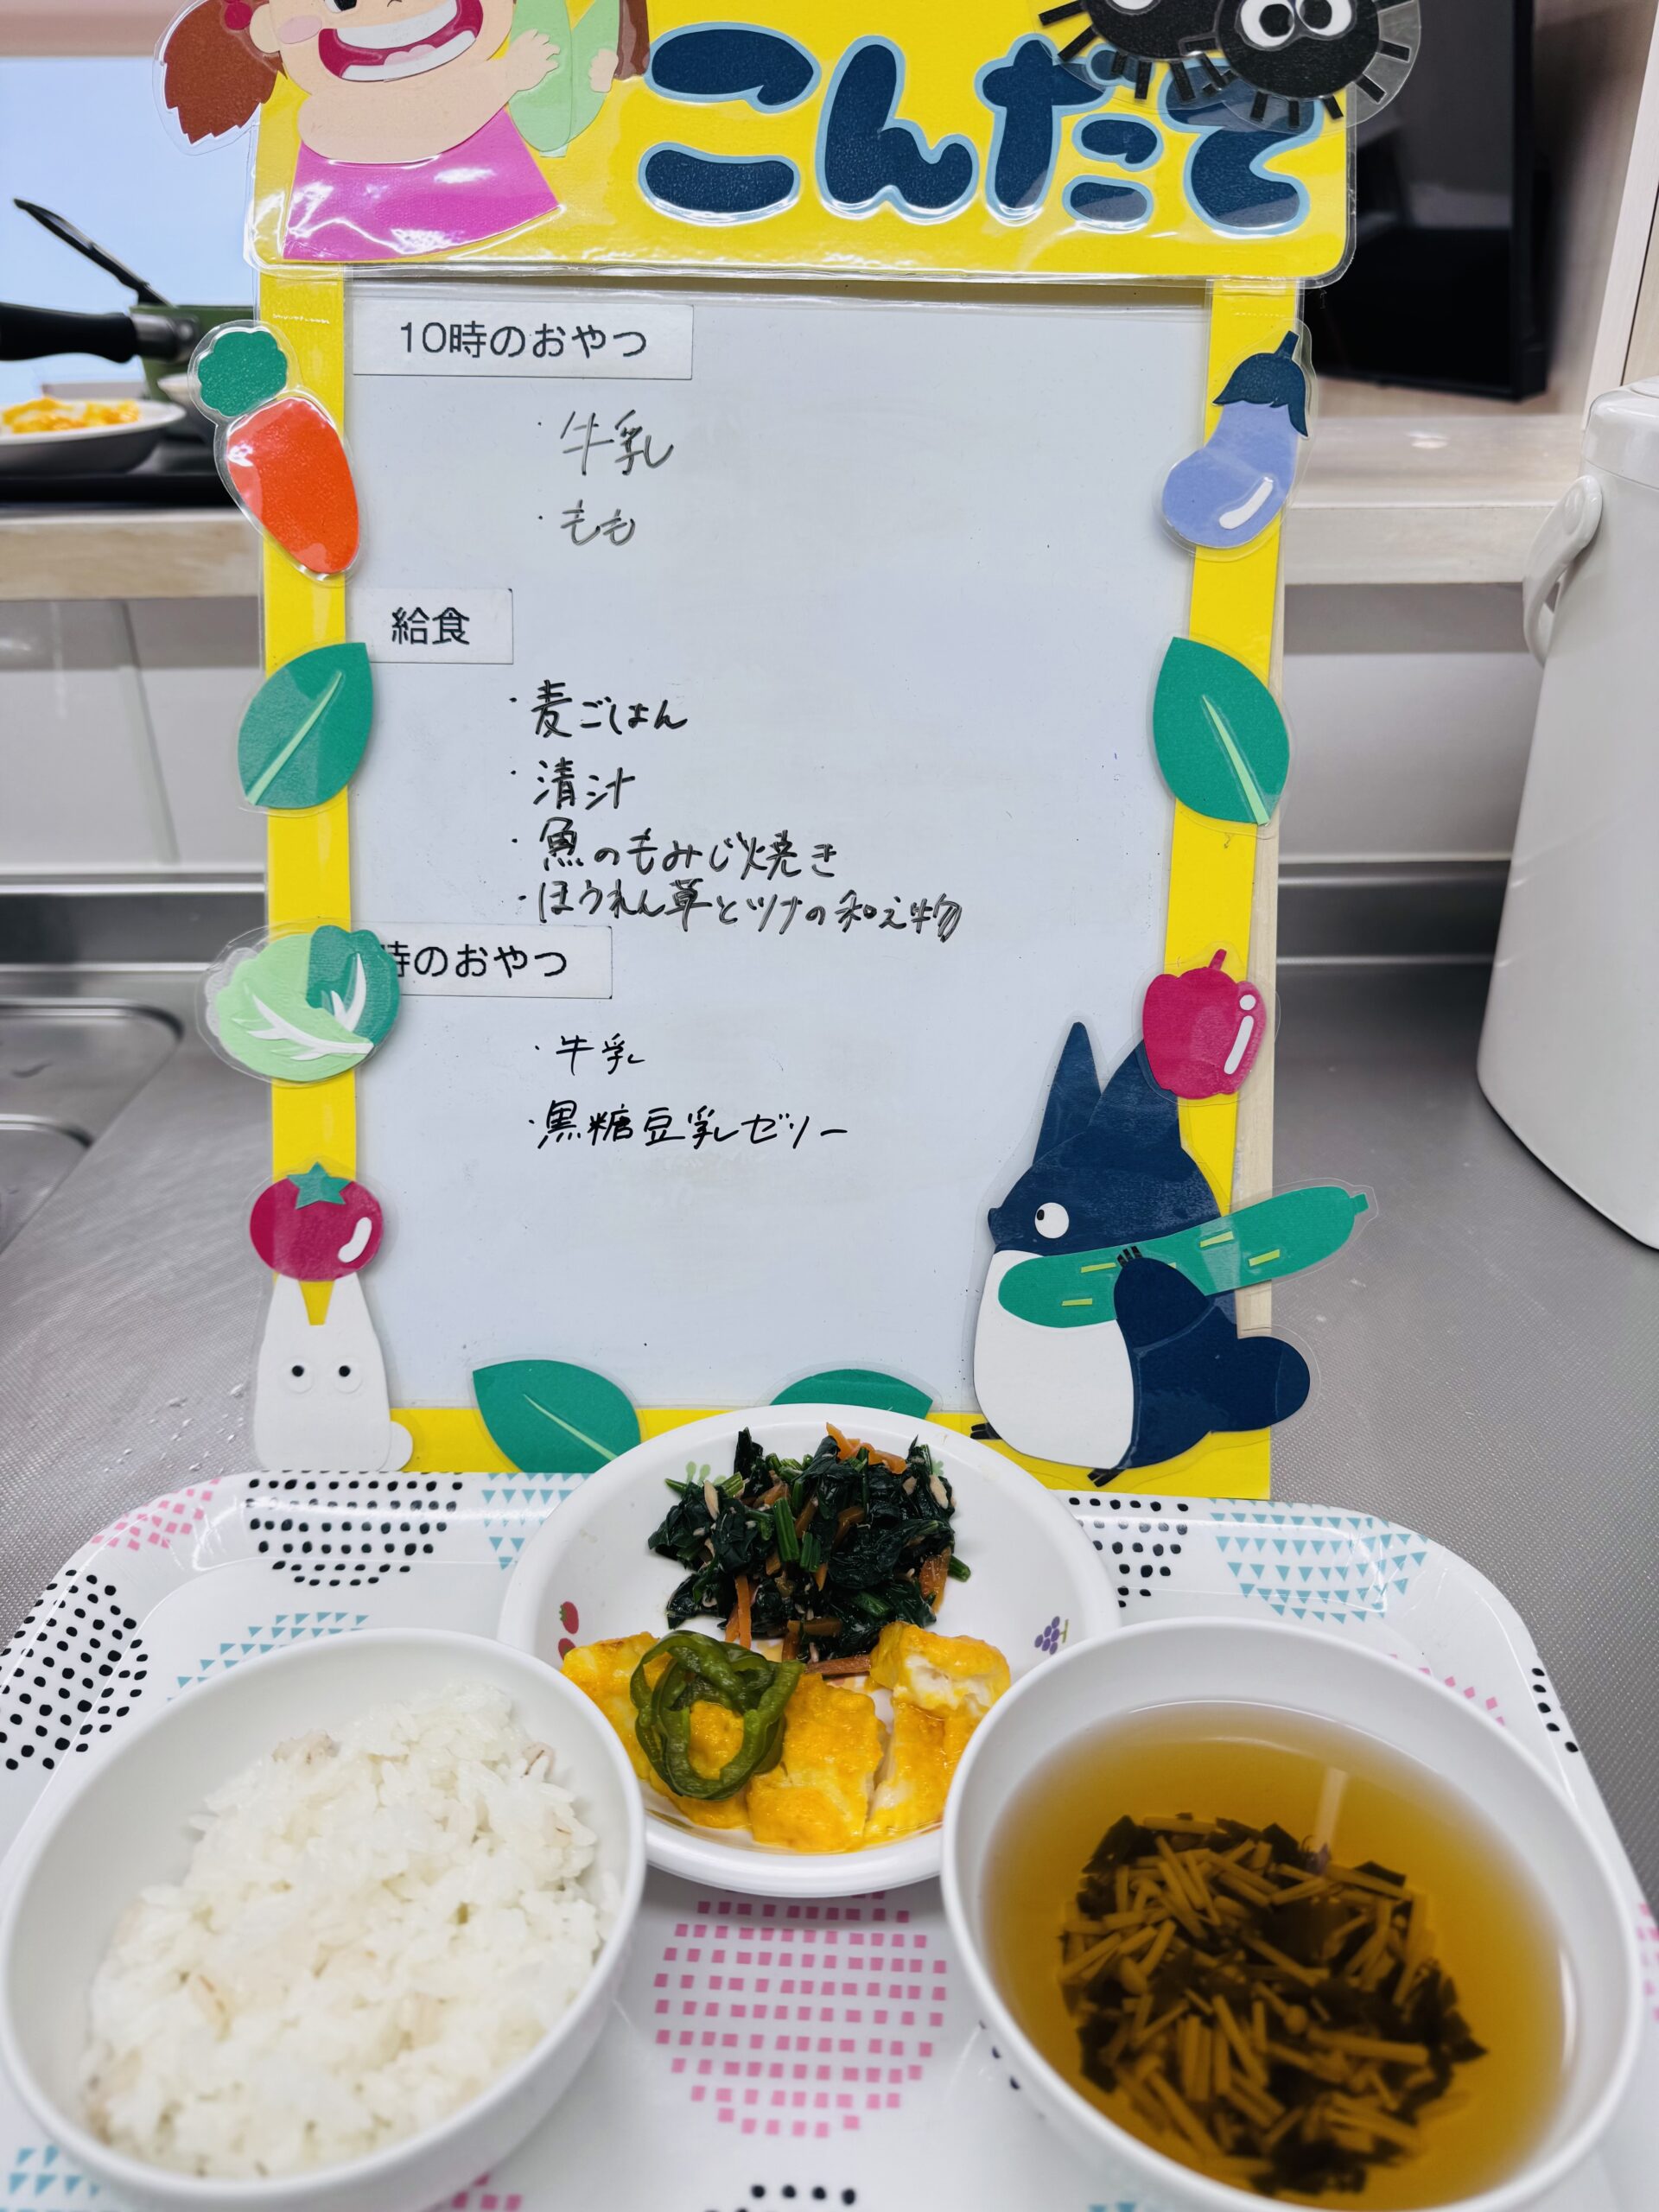 こんだて
10時のおやつ
・牛乳
・もも
給食
・麦ごはん
・清汁
・魚のもみじ焼き
・ほうれん草とツナの和え物
時のおやつ
・牛乳
・黒糖豆乳ゼリー